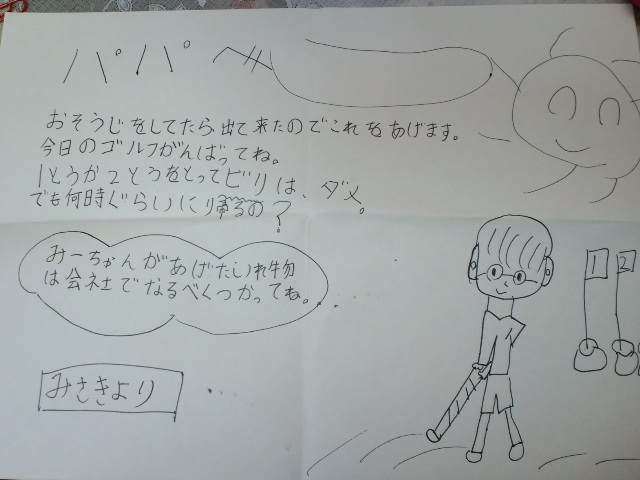 パパへ
おそうじをしてたら出て来たのでこれをあげます。
今日のゴルフがんばってね。
1とうか2とうをとってビリは、ダメ。
でも何時ぐらいにり帰るの?
みーちゃんがあげたいれ物
は会社でなるべくつかってね。...
みさきより
1 2